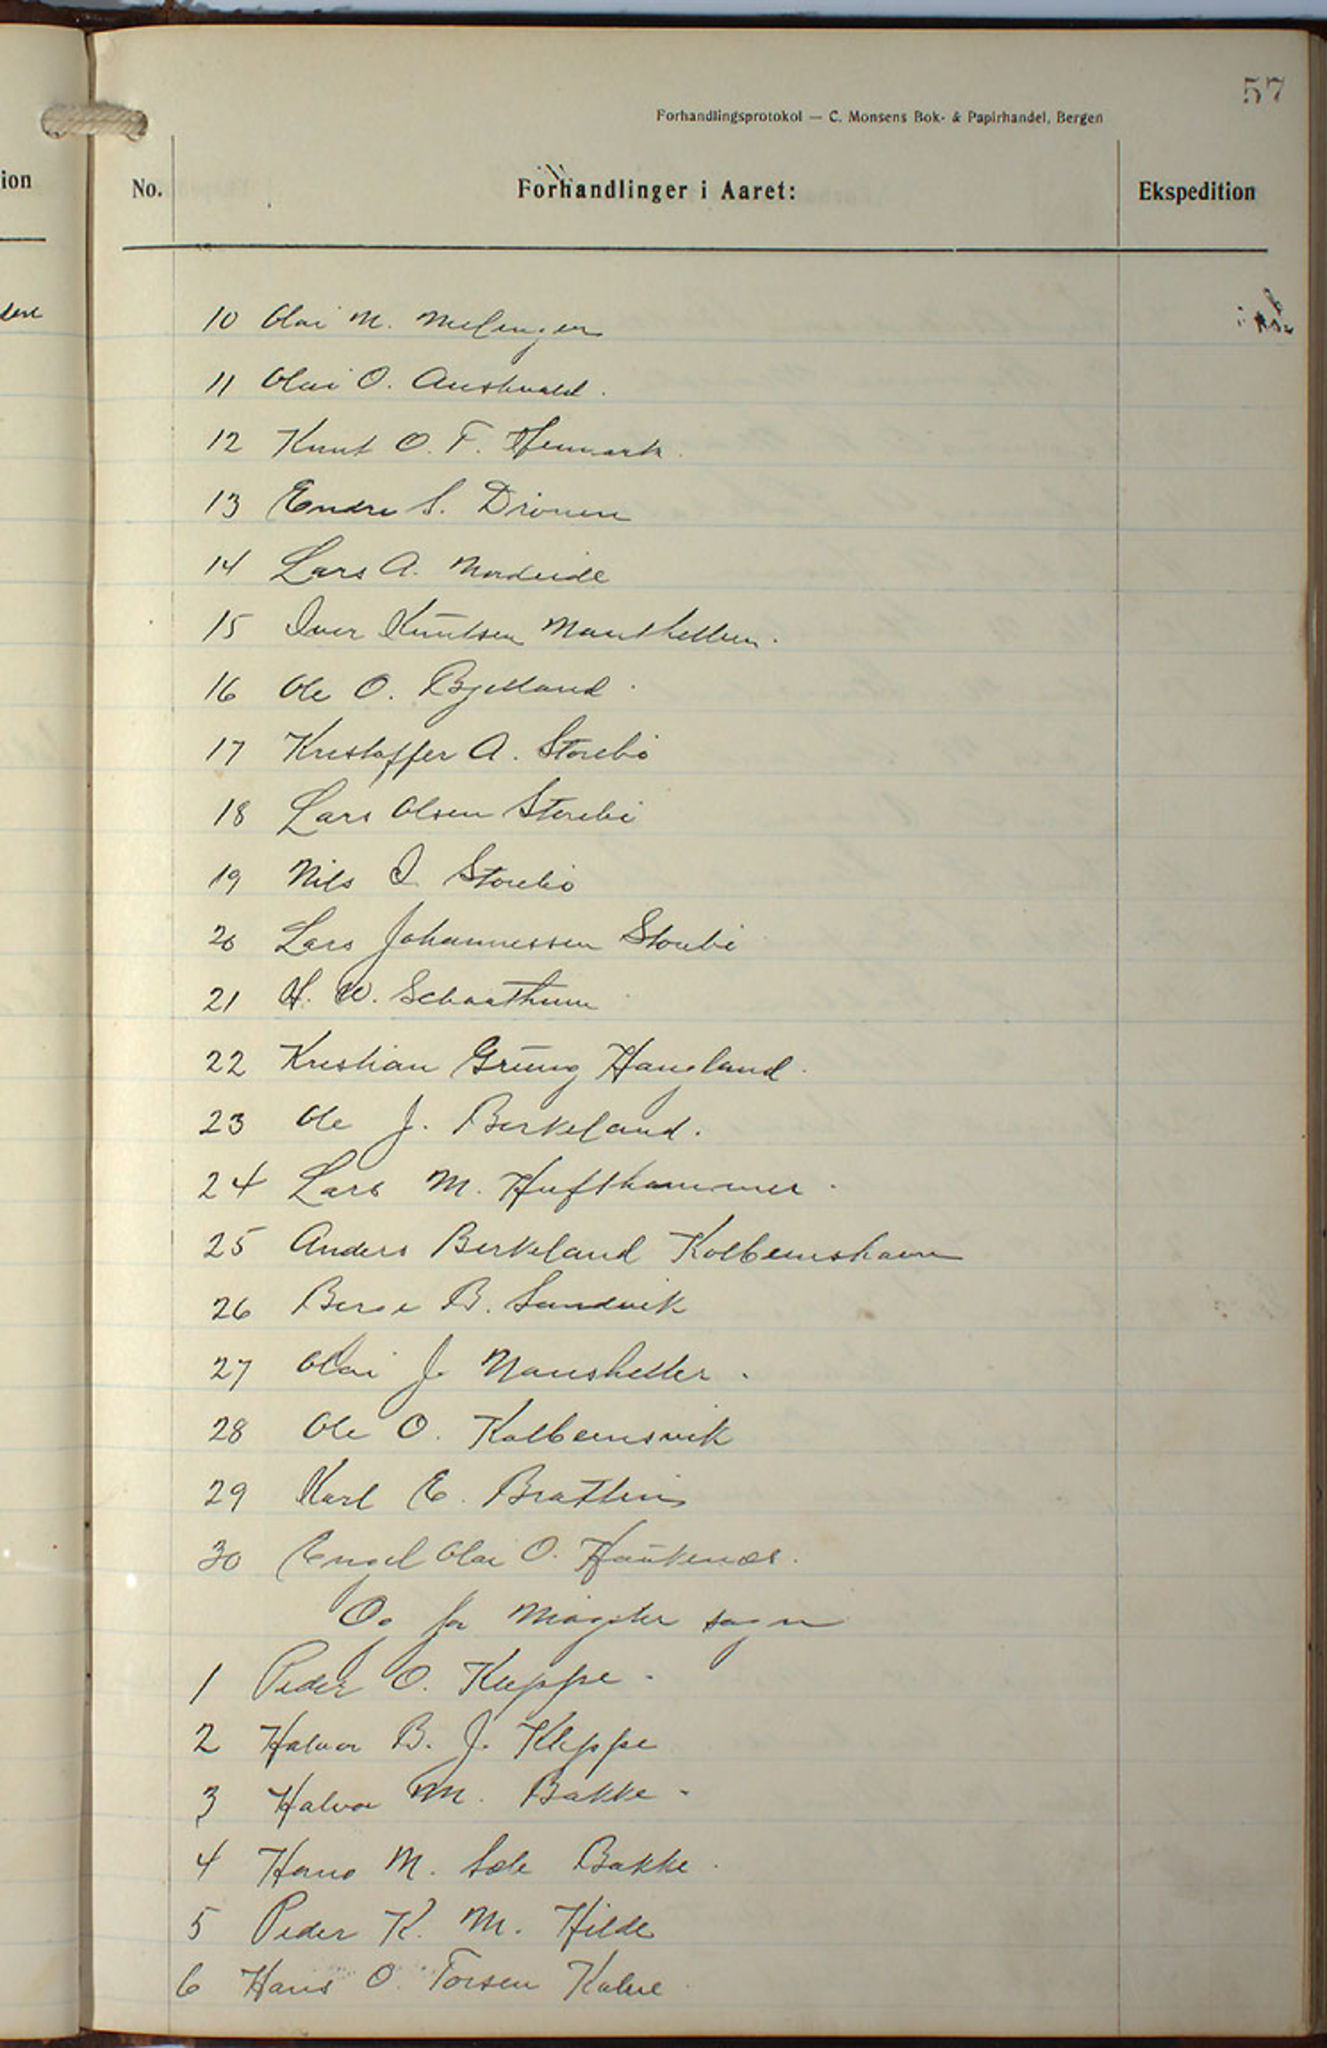 57
Forhandlingsprotokol — C. Monsens Bok- & Papirhandel, Bergen
ion
No.
Forhandlinger i Aaret:
Ekspedition
10 Olai M. Melingen
11 Olai O. Austevold.
12 Knut O. F. Stenmark.
13 Endre S. Drønen
14 Lars A. Mordeide
15 Iver Knutsen
16 Ole O. Bjelland.
17 Kristoffer A. Storebø
18 Lars Olsen Storebø
19 Nils I. Storebø
20 Lars Johannessen Storebø
21 H. W. Schaathun
22 Kristian Grung Haugland.
23 Ole J. Birkeland.
24 Lars M. Hufthammer.
25 Anders Birkeland Kolbeinshavn
26 Berge B. Sandvik
27 Olai J. Nausheller.
28 Ole O. Kolbeinsvik
29 Karl E. Brattli
30 Engel Olai O. Haukenæs.
Og for Møgster sogn
1 Peder O. Kleppe.
2 Halvor B. J. Kleppe
3 Halvor M. Bakke.
4 Hans M. Sele Bakke.
5 Peder K. M. Hilde
6 Hans O. Torsen Kalve